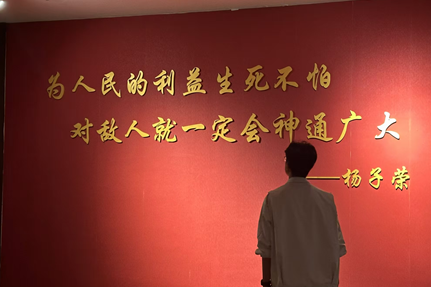 为人民的利益生死不怕
对敌人就一定会神通广大
——杨子荣